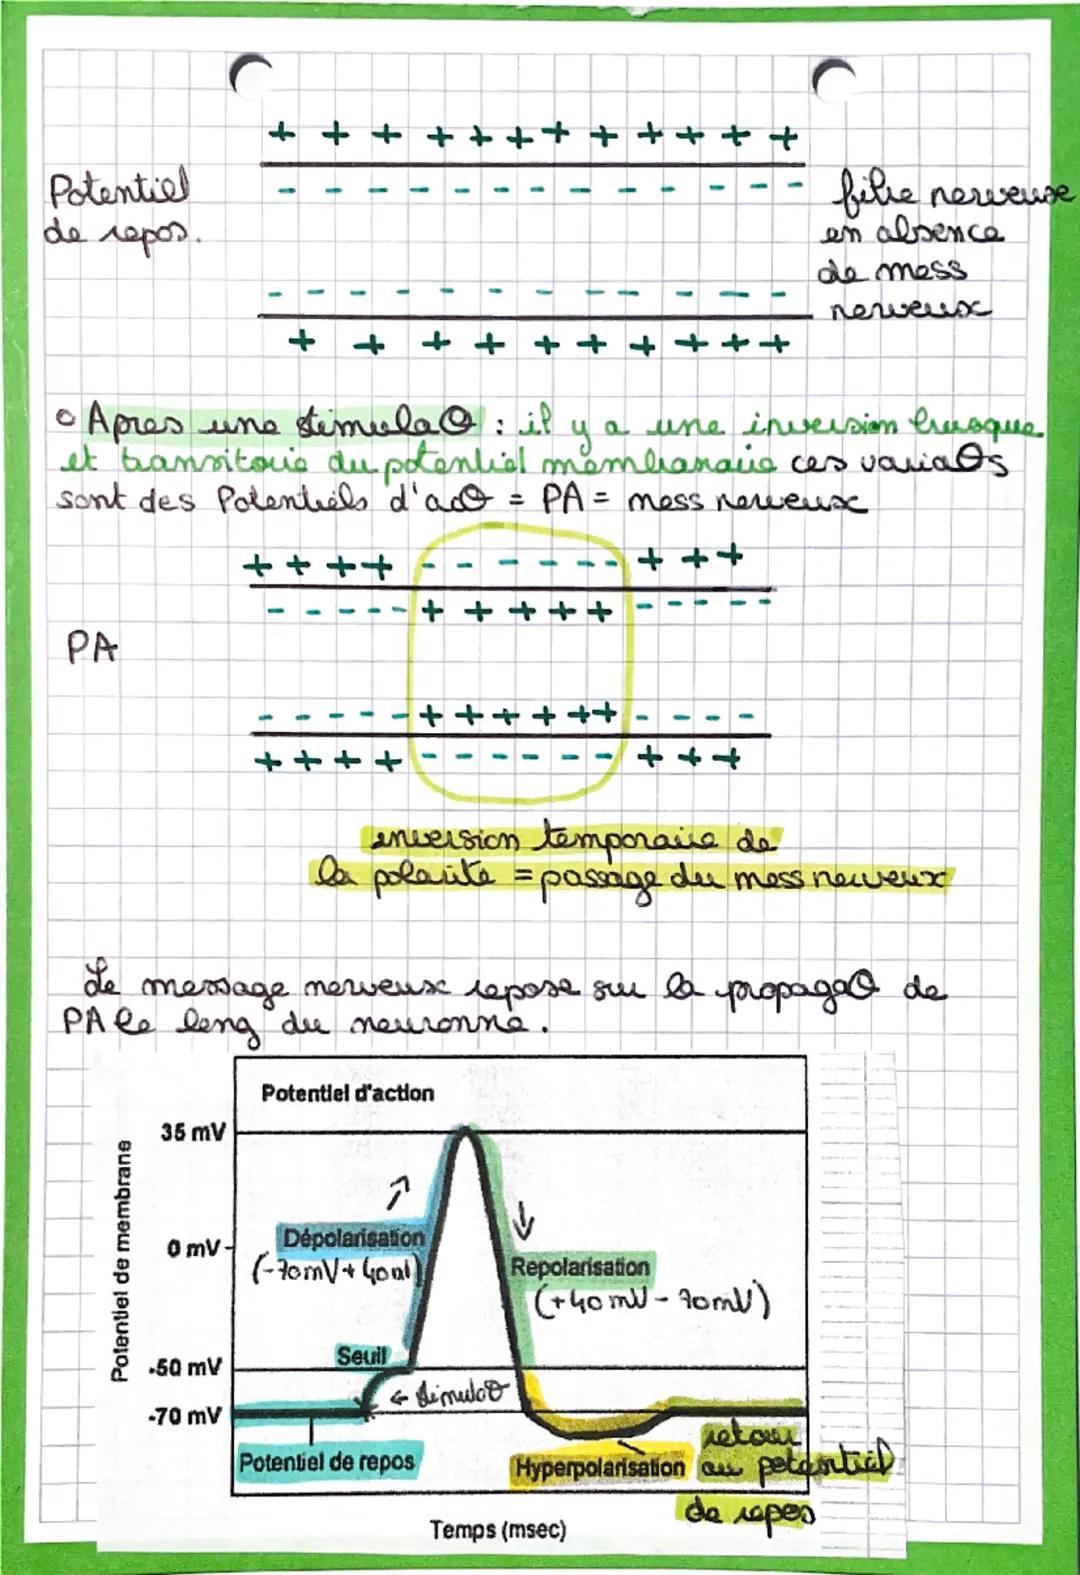 + + + + + + + + + + + +
Potentiel
de repos.
- - - - - - - - - - - - -
fibre nerveuse
en absence
de mess
nerveux
- - - - - - - - - - - -
+ + + + + + + + + +
• Apres une stimulaΘ : il y a une inversion brusque
et transitoire du potentiel membranaire ces variaΘs
sont des Potentiels d'acΘ = PA = mess nerveux
+ + + + - - - - - - - + + +
- - - - - + + + + + - - - - -
PA
- - - - - + + + + + + - - - -
+ + + + - - - - - - - + + +
inversion temporaire de
la polarité = passage du mess nerveux
Le message nerveux repose sur la propagaΘ de
PA le long du neuronne.
Potentiel d'action
Potentiel de membrane
35 mV
0 mV
-50 mV
-70 mV
Dépolarisation
(-70mV+40m)
Repolarisation
(+40mV-70mV)
Seuil
← stimulaΘ
Potentiel de repos
Hyperpolarisation
retour
au potentiel
de repos
Temps (msec)